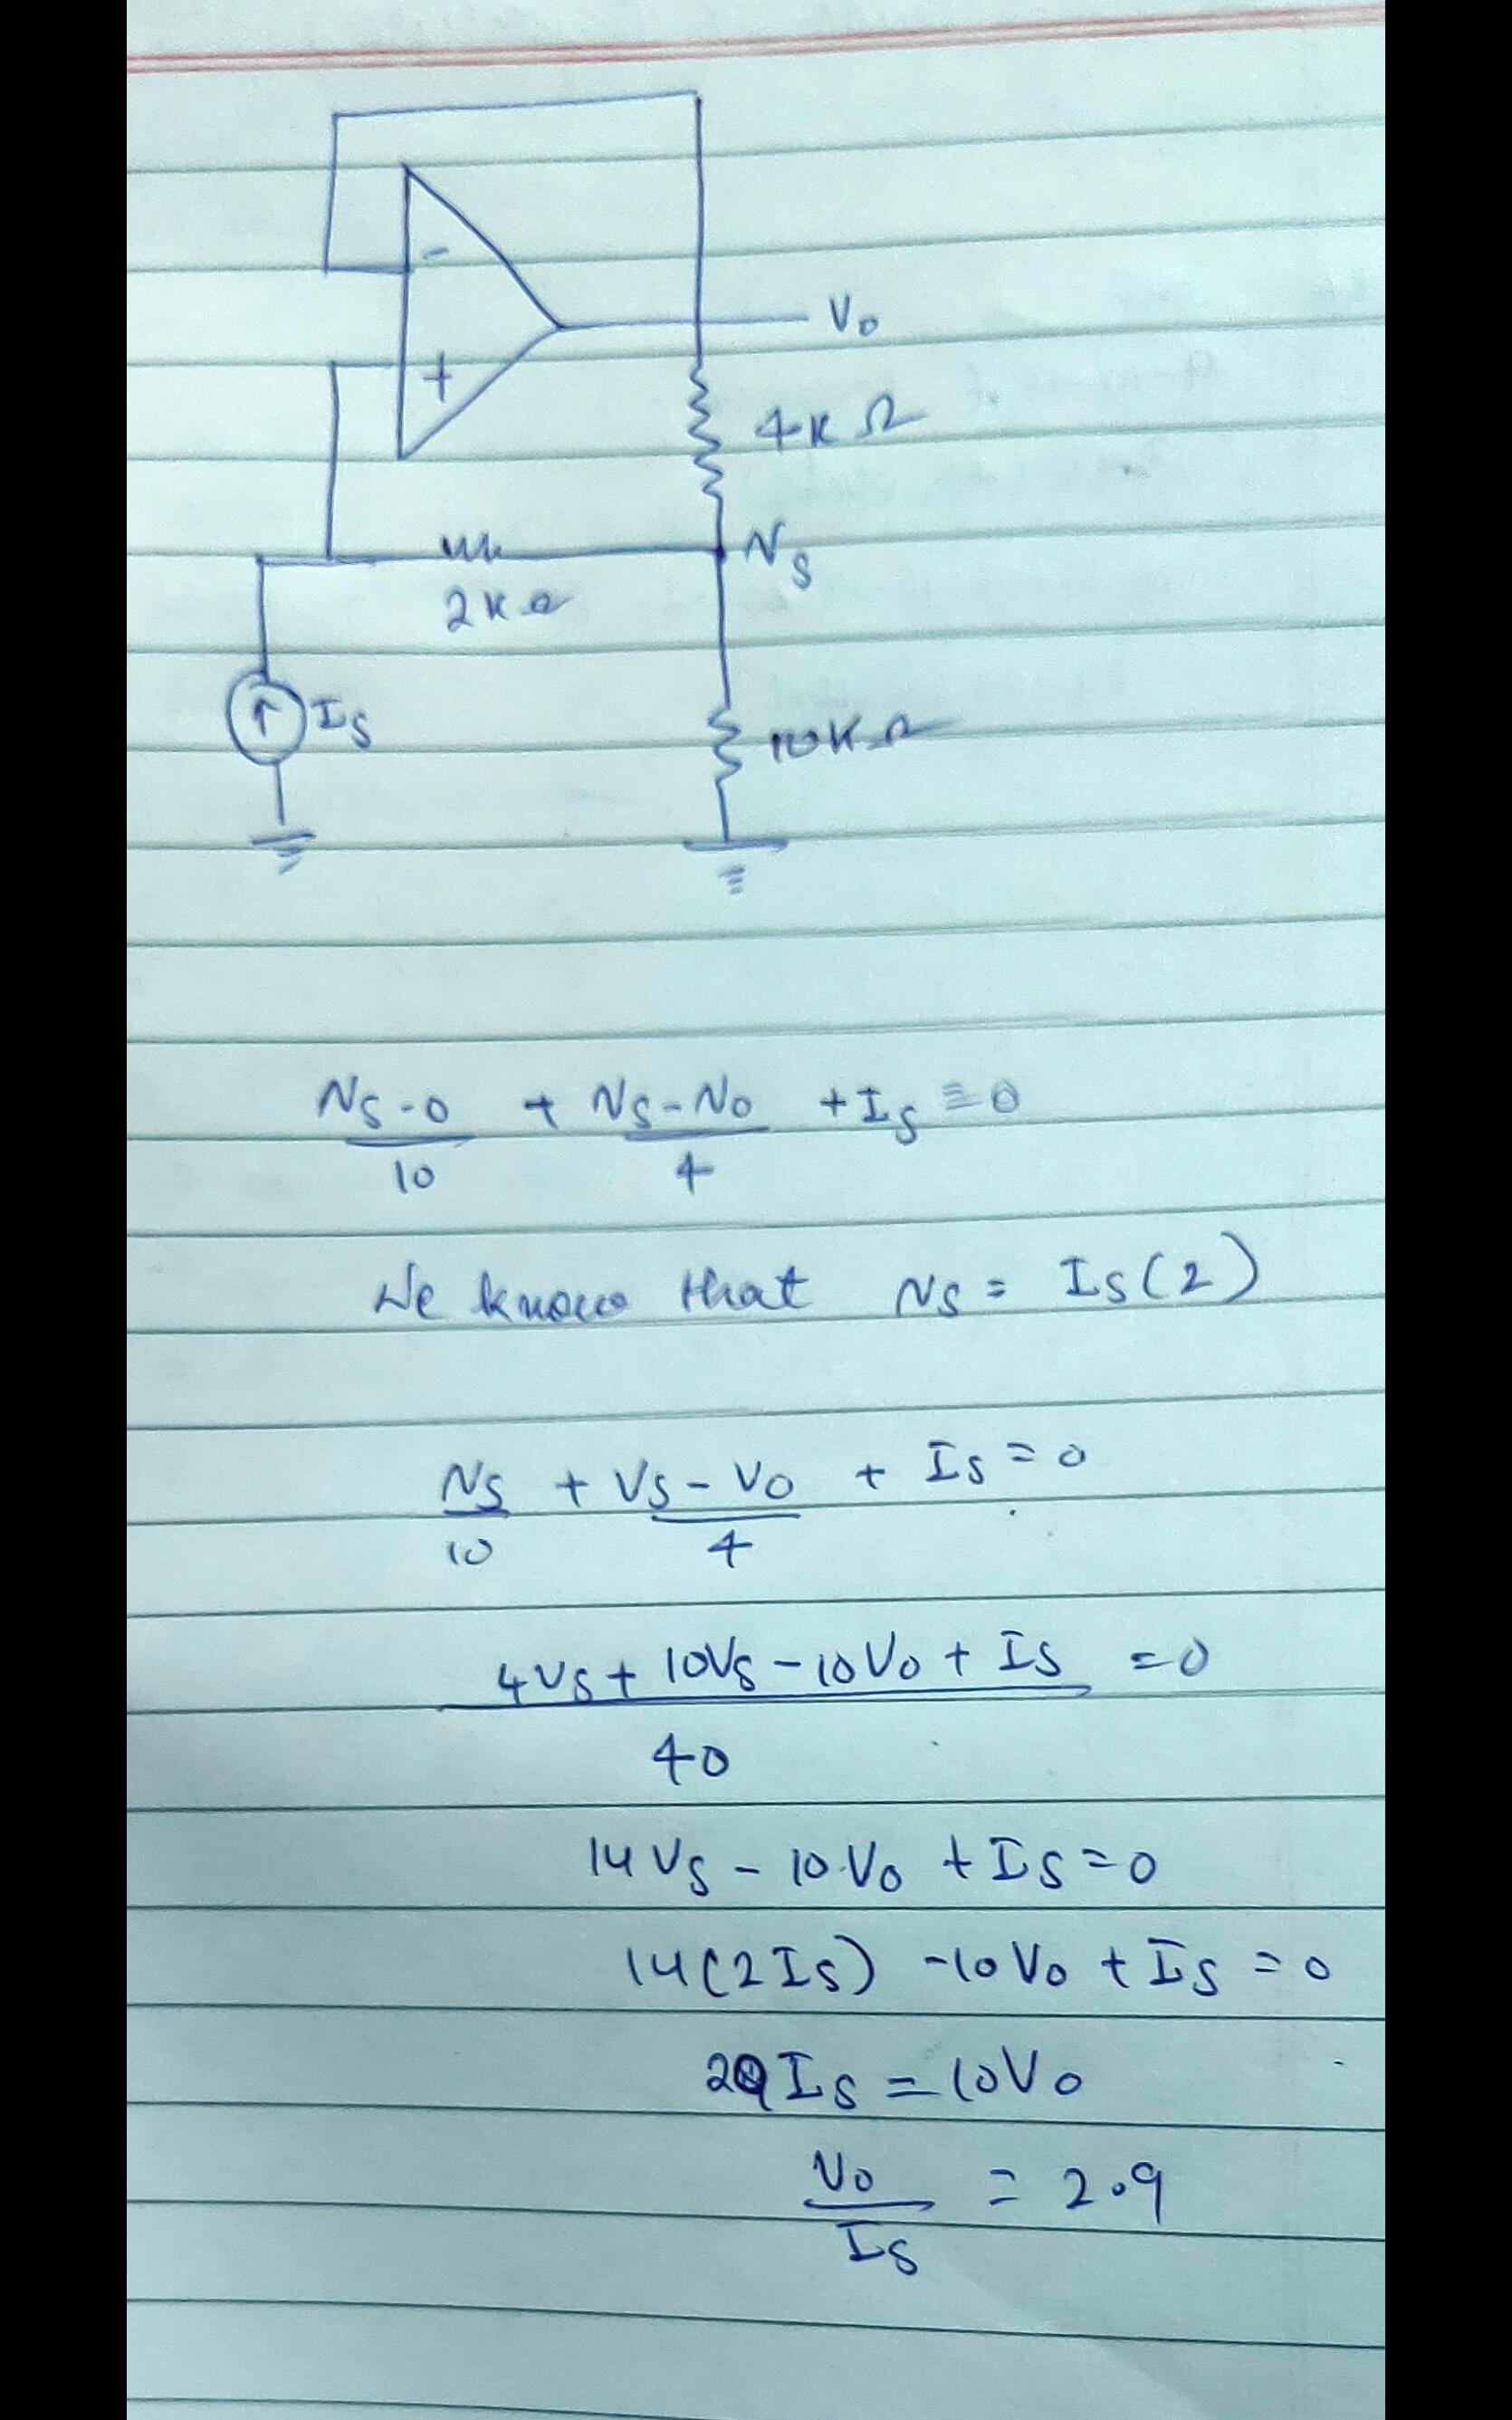 -
V₀
+
4K Ω
Vs
2KΩ
Is
10KΩ
Vs-0/10 + Vs-V0/4 + Is = 0
We know that Vs = Is(2)
Vs/10 + Vs - V0/4 + Is = 0
4Vs + 10Vs - 10V0 + Is/40 = 0
14Vs - 10V0 + Is = 0
14(2Is) - 10V0 + Is = 0
29Is = 10V0
V0/Is = 2.9